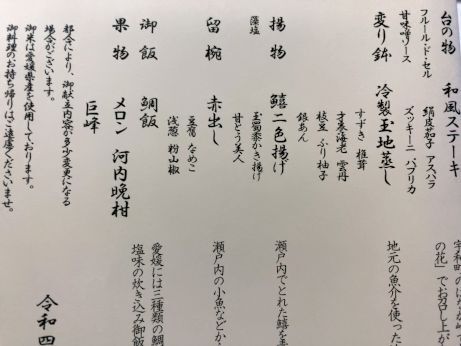 台の物 和風ステーキ
フルール・ド・セル
甘味噌ソース
絹皮茄子 アスパラ
ズッキーニ パプリカ
変り鉢 冷製玉地蒸し
すずき 椎茸
才巻海老 雲丹
枝豆 ぶり柚子
銀あん
揚物 鱚二色揚げ
藻塩
玉蜀黍かき揚げ
甘とう美人
留椀 赤出し
豆腐 なめこ
浅葱 粉山椒
御飯 鯛飯
果物 メロン 河内晩柑
巨峰
都合により、御献立内容が多少変更になる
場合がございます。
御米は愛媛県産を使用しております。
御料理のお持ち帰りはご遠慮くださいませ。
の花」でお召し上が
地元の魚介を使った
瀬戸内でとれた鱚を
瀬戸内の小魚などか
愛媛には三種類の鯛
塩味の炊き込み御飯
令和四